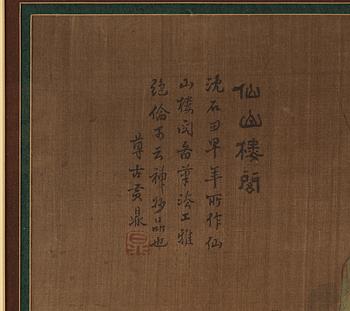 仙山樓閣
沈石田早年所作仙
山樓閣圖筆法工雅
絕倫可云神妙品也
尊古黃鼎
鼎